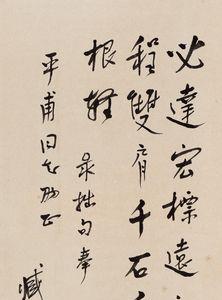 必達宏標遠
程雙肩千石
根輕 录拙句奉
平甫同志
臧